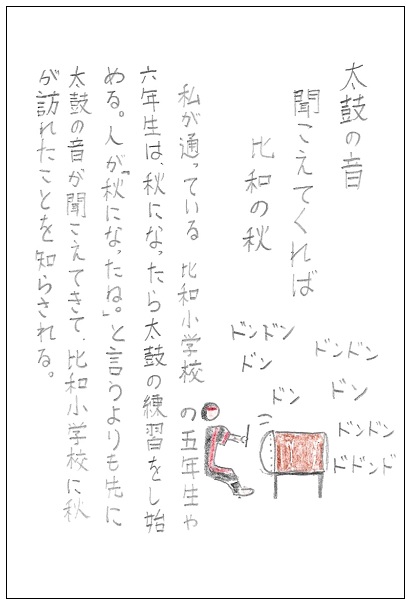 太鼓の音
聞こえてくれば
比和の秋
私が通っている 比和小学校 の五年生や
六年生は、秋になったら太鼓の練習をし始
める。人が「秋になったね。」と言うよりも先に
太鼓の音が聞こえてきて、比和小学校に秋
が訪れたことを知らされる。
ドンドン
ドン
ドンドン
ドン
ドン
ドンドン
ドドンド